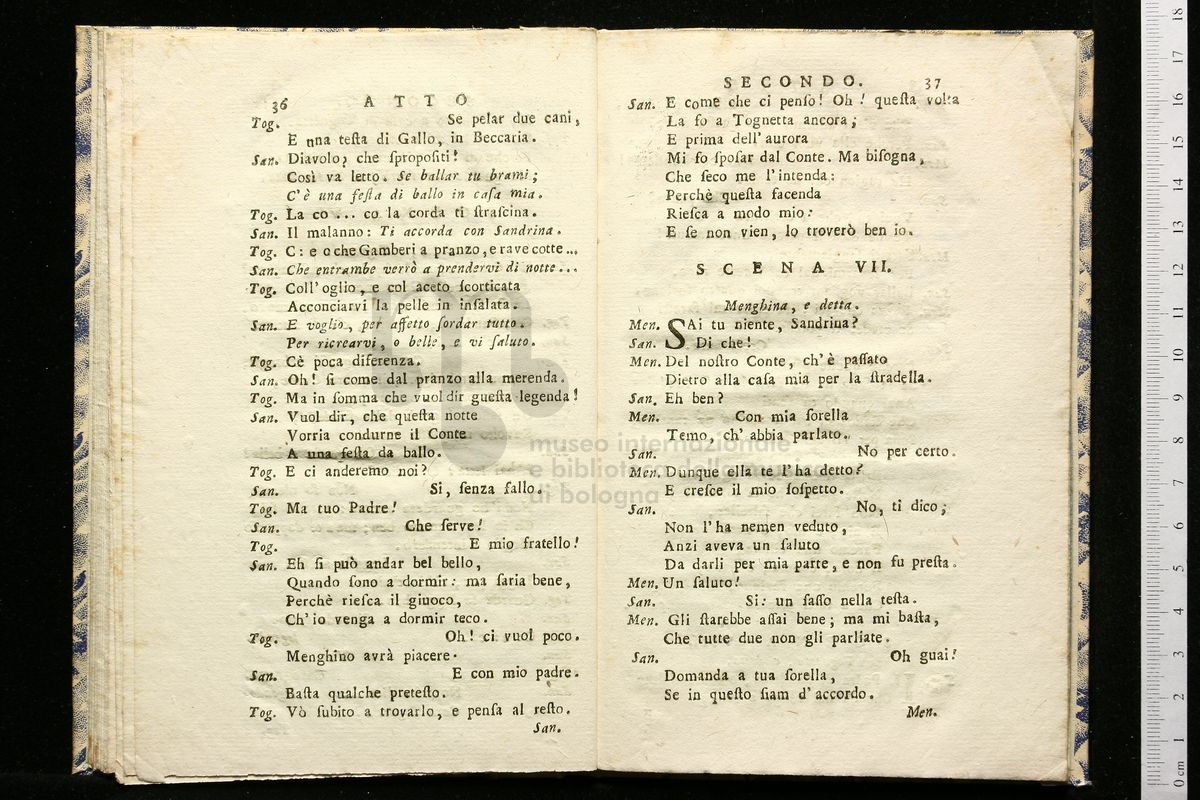 36 ATTO
Tog. Se pelar due cani,
E una teſta di Gallo, in Beccaria.
San. Diavolo; che ſpropoſiti!
Così va letto. Se ballar tu brami;
C'è una feſta di ballo in caſa mia.
Tog. La co ... co la corda ti ſtraſcina.
San. Il malanno: Ti accorda con Sandrina.
Tog. C: e o che Gamberi a pranzo, e rave cotte ...
San. Che entrambe verrò a prendervi di notte ...
Tog. Coll' oglio, e col aceto ſcorticata
Acconciarvi la pelle in inſalata.
San. E voglio, per affetto ſordar tutto.
Per ricrearvi, o belle, e vi ſaluto.
Tog. Cè poca diferenza.
San. Oh! ſi come dal pranzo alla merenda.
Tog. Ma in ſomma che vuol dir gueſta legenda!
San. Vuol dir, che queſta notte
Vorria condurne il Conte
A una feſta da ballo.
Tog. E ci anderemo noi?
San. Si, ſenza fallo.
Tog. Ma tuo Padre!
San. Che ſerve!
Tog. E mio fratello!
San. Eh ſi può andar bel bello,
Quando ſono a dormir: ma ſaria bene,
Perchè rieſca il giuoco,
Ch'io venga a dormir teco.
Tog. Oh! ci vuol poco.
Menghino avrà piacere.
San. E con mio padre.
Baſta qualche preteſto.
Tog. Vò ſubito a trovarlo, e penſa al reſto.
San.
SECONDO. 37
San. E come che ci penſo! Oh! queſta volta
La fo a Tognetta ancora;
E prima dell' aurora
Mi fo ſpoſar dal Conte. Ma biſogna,
Che ſeco me l'intenda:
Perchè queſta facenda
Rieſca a modo mio:
E ſe non vien, lo troverò ben io.
SCENA VII.
Menghina, e detta.
Men. SAi tu niente, Sandrina?
San. Di che!
Men. Del noſtro Conte, ch'è paſſato
Dietro alla caſa mia per la ſtradella.
San. Eh ben?
Men. Con mia ſorella
Temo, ch' abbia parlato.
San. No per certo.
Men. Dunque ella te l'ha detto?
E creſce il mio ſoſpetto.
San. No, ti dico;
Non l'ha nemen veduto,
Anzi aveva un ſaluto
Da darli per mia parte, e non fu preſta.
Men. Un ſaluto!
San. Si: un ſaſſo nella teſta.
Men. Gli ſtarebbe aſſai bene; ma mi baſta,
Che tutte due non gli parliate.
San. Oh guai!
Domanda a tua ſorella,
Se in queſto ſiam d'accordo.
Men.
museo internazionale
e biblioteca della
di bologna
0 cm 1 2 3 4 5 6 7 8 9 10 11 12 13 14 15 16 17 18